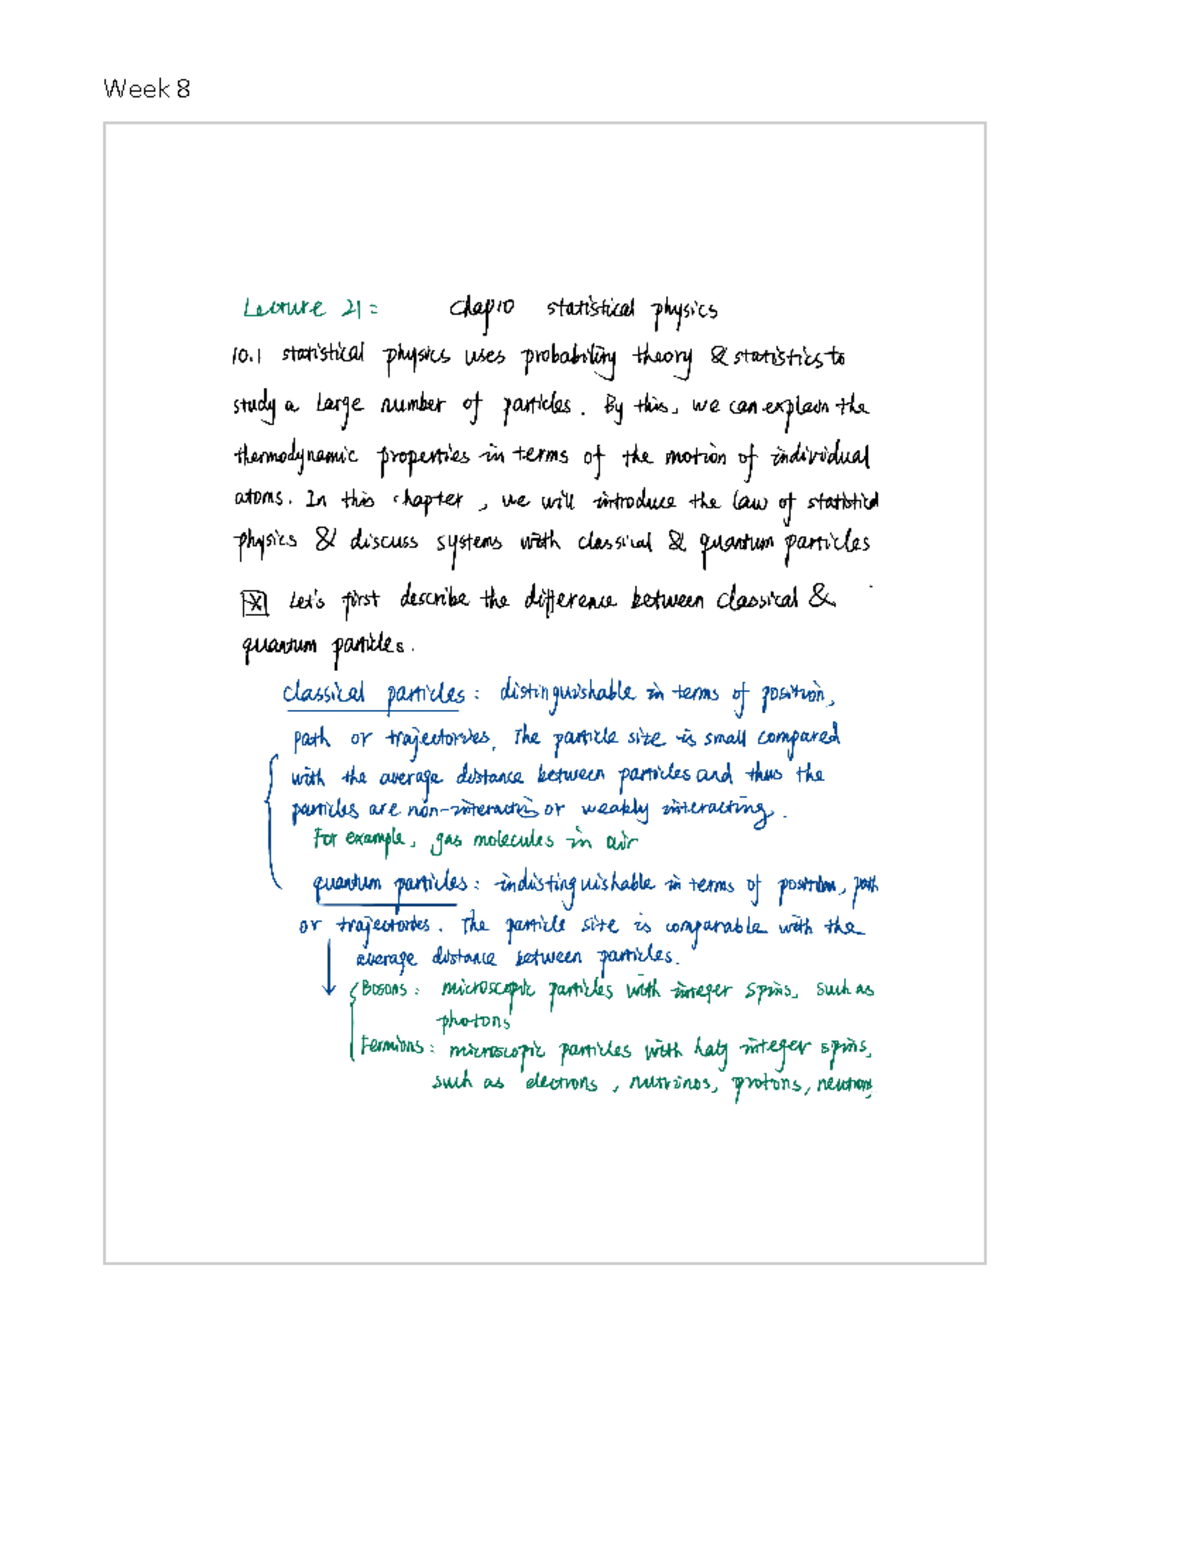 Week 8
Lecture 21: Chap10 statistical physics
10.1 statistical physics uses probability theory & statistics to
study a large number of particles. By this, we can explain the
thermodynamic properties in terms of the motion of individual
atoms. In this chapter, we will introduce the law of statistical
physics & discuss systems with classical & quantum particles
Let's first describe the difference between classical &
quantum particles.
classical particles: distinguishable in terms of position,
path or trajectories. The particle size is small compared
with the average distance between particles and thus the
particles are non-interacting or weakly interacting.
For example, gas molecules in air
quantum particles: indistinguishable in terms of position, path
or trajectories. The particle size is comparable with the
average distance between particles.
Bosons: microscopic particles with integer spins, such as
photons
Fermions: microscopic particles with half integer spins,
such as electrons, nutrinos, protons, neutrons